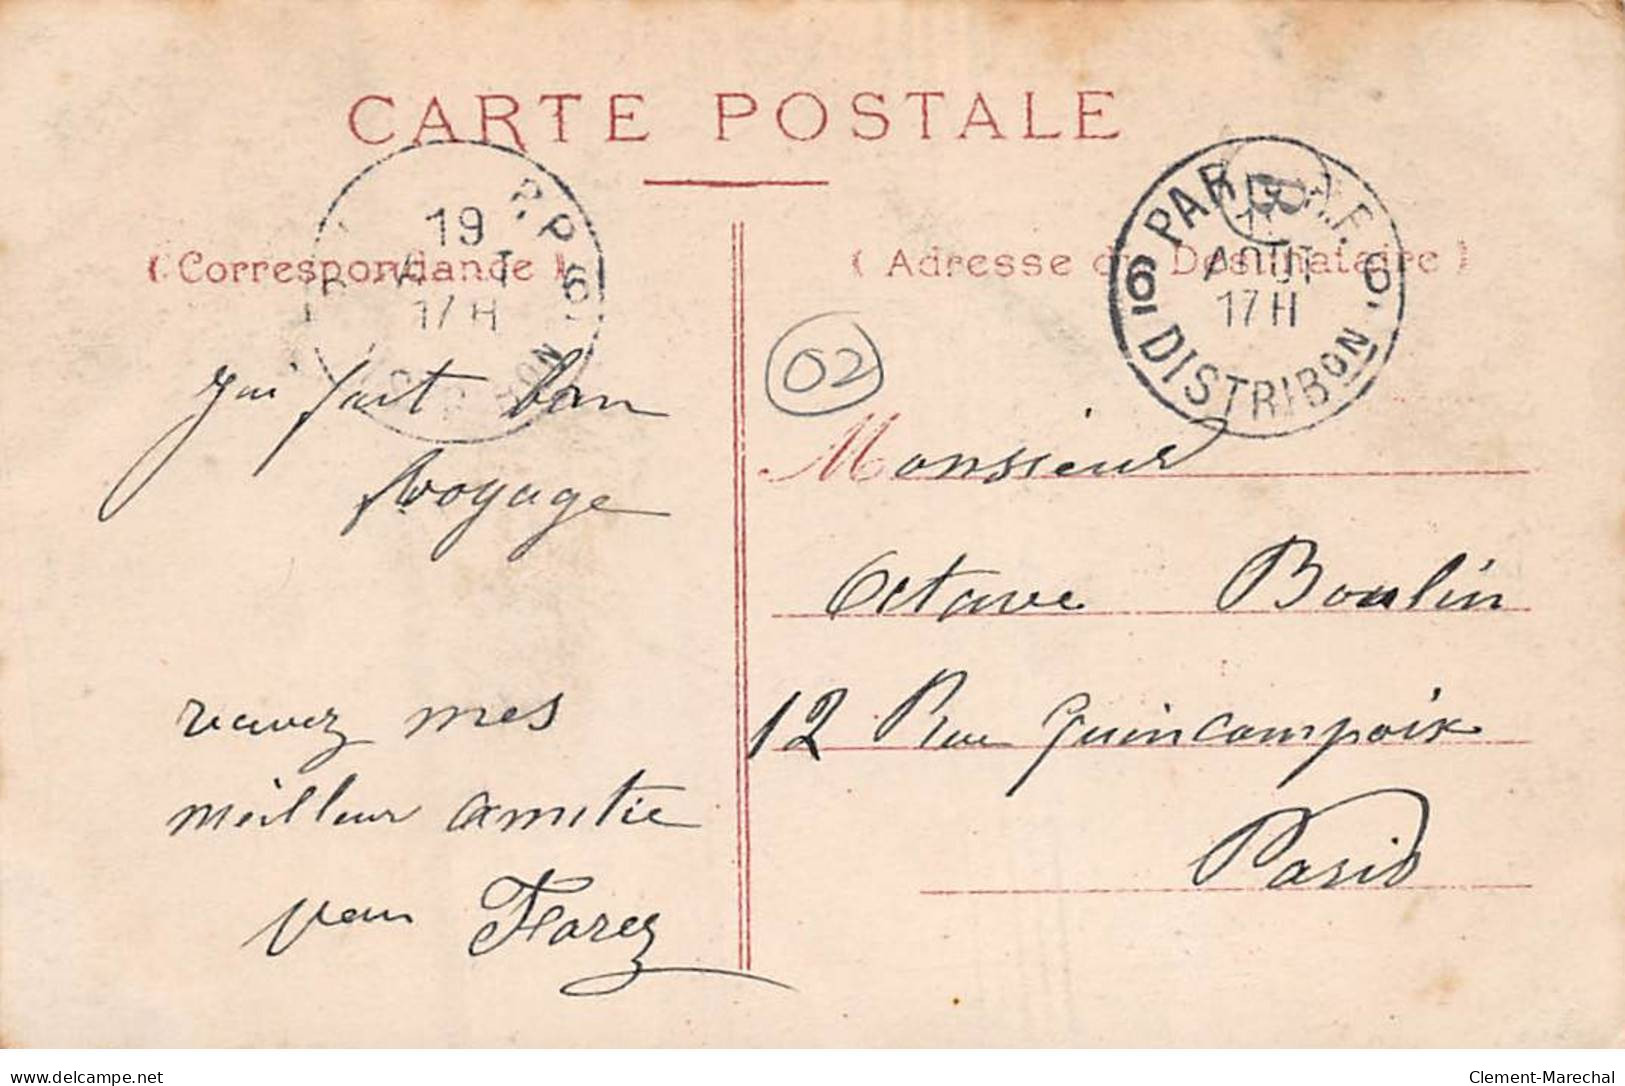 CARTE POSTALE
( Correspondance )
19
17 H
6
jai fait bon
voyage
recevez mes
meilleur amitie
Florez
( Adresse du Destinataire )
6 PAR R.F. 6
B
AOUT
17 H
DISTRIBON
02
Monsieur
Octave Boulin
12 Rue Quincampoix
Paris
delcampe.net
Clement-Marechal